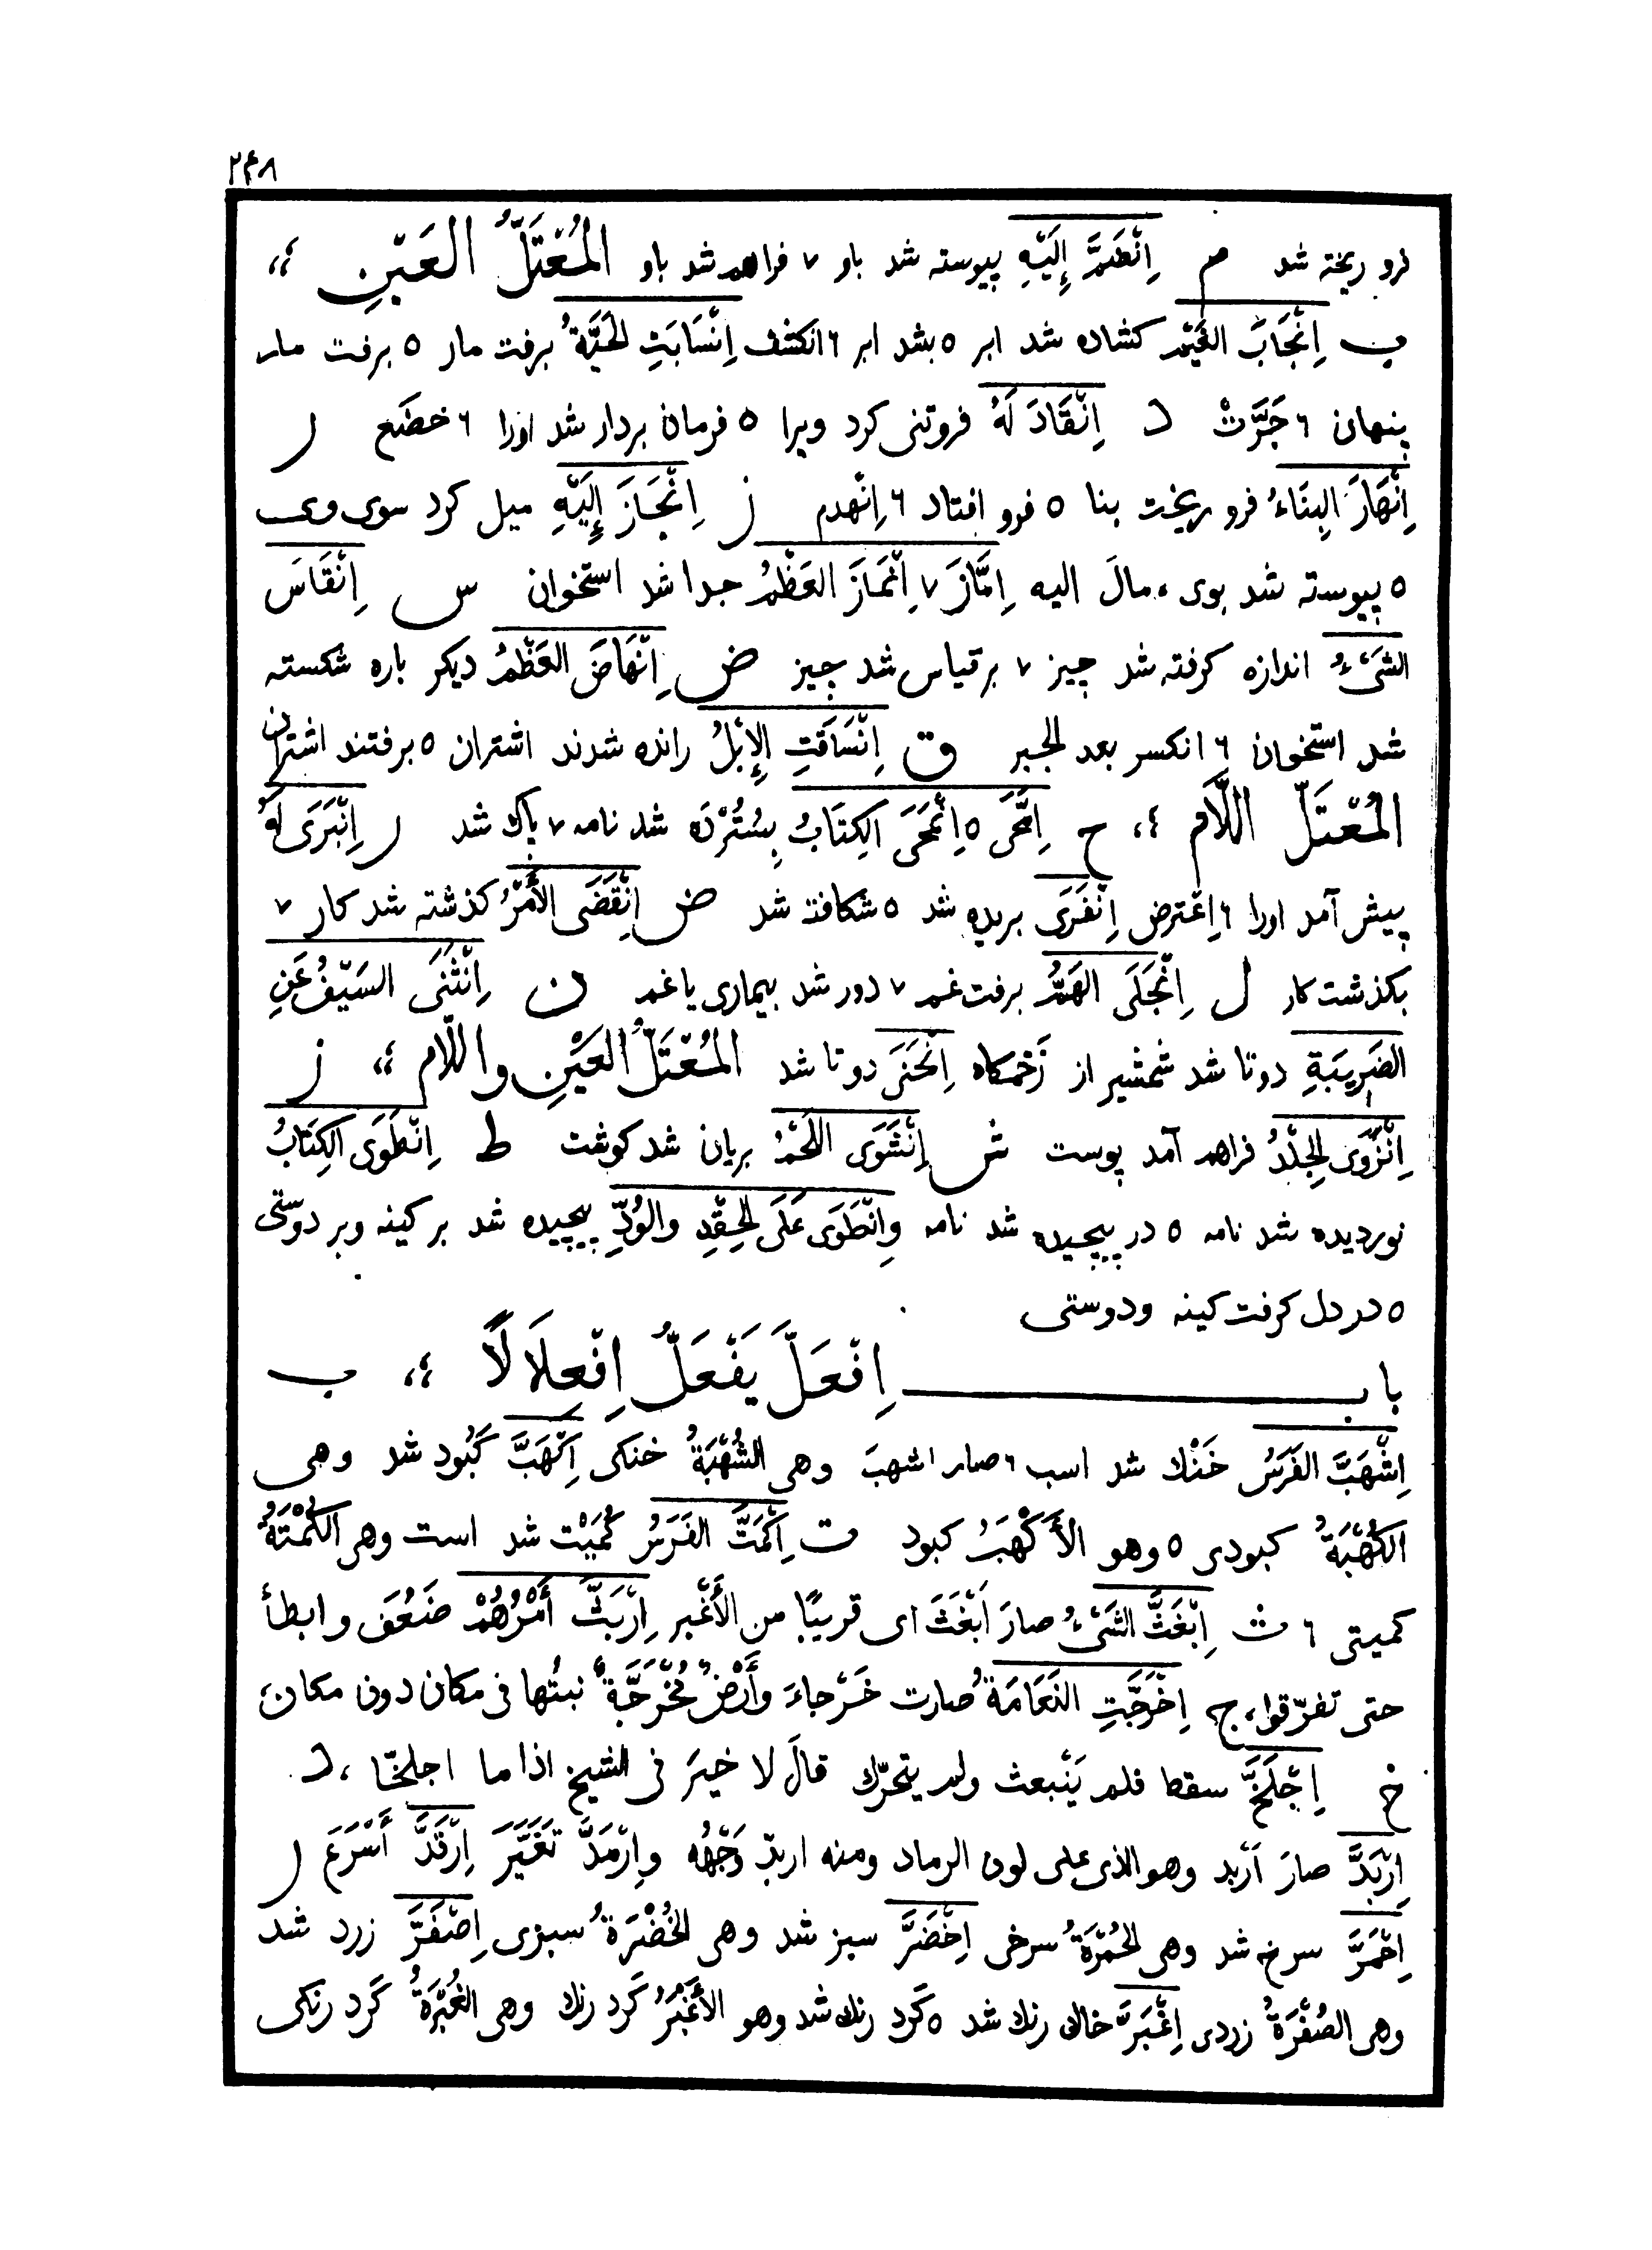 ۲۴۸
فرو ریخته شد م اِنْضَمَّ إِلَيْهِ پیوسته شد باو ۷ فراهم شد باو المُعْتَلُّ العَيْنِ ؛؛
ب اِنْجَابَ الغَيْمُ کشاده شد ابر ۵ بشد ابر ۶ انکشف اِنْسَابَتِ الحَيَّةُ برفت مار ۵ برفت مار
پنهان ۶ جَرَّتْ د اِنْقَادَ لَهُ فروتنی کرد ویرا ۵ فرمان بردار شد اورا ۶ خضَع ر
اِنْهَارَ البِنَاءُ فرو ریخت بنا ۵ فرو افتاد ۶ اِنْهدم ز اِنْحَازَ إِلَيْهِ میل کرد سوی وی
۵ پیوسته شد بوی ، مالَ الیه اِمَّازَ ۷ اِنْمَازَ العَظْمُ جدا شد استخوان س اِنْقَاسَ
الشَیْءُ اندازه کرفته شد چیز ۷ بر قیاس شد چیز ض اِنْهَاضَ العَظْمُ دیکر باره شکسته
شد استخوان ۶ انکسر بعد الجبر ق اِنْسَاقَتِ الإِبْلُ رانده شدند اشتران ۵ برفتند اشتران
المُعْتَلّ اللَّام ؛؛ ح اِمَّحَى ۵ اِنْمَحَى الکِتَابُ بِسُتُرْدَه شد نامه ۷ پاک شد ر اِنْبَرَى لَهُ
پیش آمد اورا ۶ اِعْترض اِنْفَرَى بریده شد ۵ شکافته شد ض اِنْقَضَى الأَمْرُ کذشته شد کار ۷
بکذشت کار ل اِنْجَلَى الهَمُّ برفت غم ۷ دور شد بیماری یا غم ن اِنْثَنَى السَیْفُ عَنِ
الضَرِیبَةِ دوتا شد شمشیر از زَخمکاه اِنْحَنَى دوتا شد المُعْتَلُّ العَيْنِ واللّام ؛؛ ز
اِنْزَوَى الجِلْدُ فراهم آمد پوست ش اِنْشَوَى اللَحْمُ بریان شد کوشت ط اِنْطَوَى الکِتَابُ
نوردیده شد نامه ۵ در پیچیده شد نامه وانْطَوَى عَلَى الحِقْدِ والوُدِّ پیچیده شد بر کینه وبر دوستّی
۵ در دل کرفت کینه ودوستی
باب اِفْعَلَّ يَفْعَلُّ اِفْعِلَالًا ؛؛ ب
اِشْهَبَّ الفَرَسُ خَنْك شد اسب ۶ صار اشهبَ وهی الشُهْبَةُ خنکی اِکْهَبَّ کَبُود شد وهی
الکُهْبَةُ کبودی ۵ وهو الأَکْهَبُ کبود ت اِکْمَتَّ الفَرَسُ کُمَيْت شد است وهی الکُمْتَةُ
کمیتی ۶ ث اِبْغَثَّ الشَیْءُ صارَ اَبْغَثَ ای قریبًا من الأَغْبر اِرْبَثَّ أَمْرُهُمْ ضَعُفَ وابطأ
حتی تفرّقوا، ج، اِخْرَجَّتِ النَعَامَةُ صارت خَرْجاءَ وأَرْضٌ مُخْرَجَّةٌ نبتُها فی مکان دون مکان،
خ اِجْلَخَّ سقط فلم یَنْبعث ولم یتحرّك قالَ لا خیرَ فی الشیخ اذا ما اجلخّا ،د
اِرْبَدَّ صارَ اَرْبد وهو الذی علی لون الرماد ومنه اربدّ وَجْهُه واِرْمَدَّ تَغَیَّرَ اِرْقَدَّ أَسْرَعَ ر
اِحْمَرَّ سرخ شد وهی الحُمْرَةُ سرخی اِخْضَرَّ سبز شد وهی الخُضْرَةُ سبزی اِصْفَرَّ زرد شد
وهی الصُفْرَةُ زردی اِغْبَرَّ خاك رنك شد ۵ کَرد رنك شد وهو الأَغْبَرُ کَرد رنك وهی الغُبْرَةُ کَرد رنکی